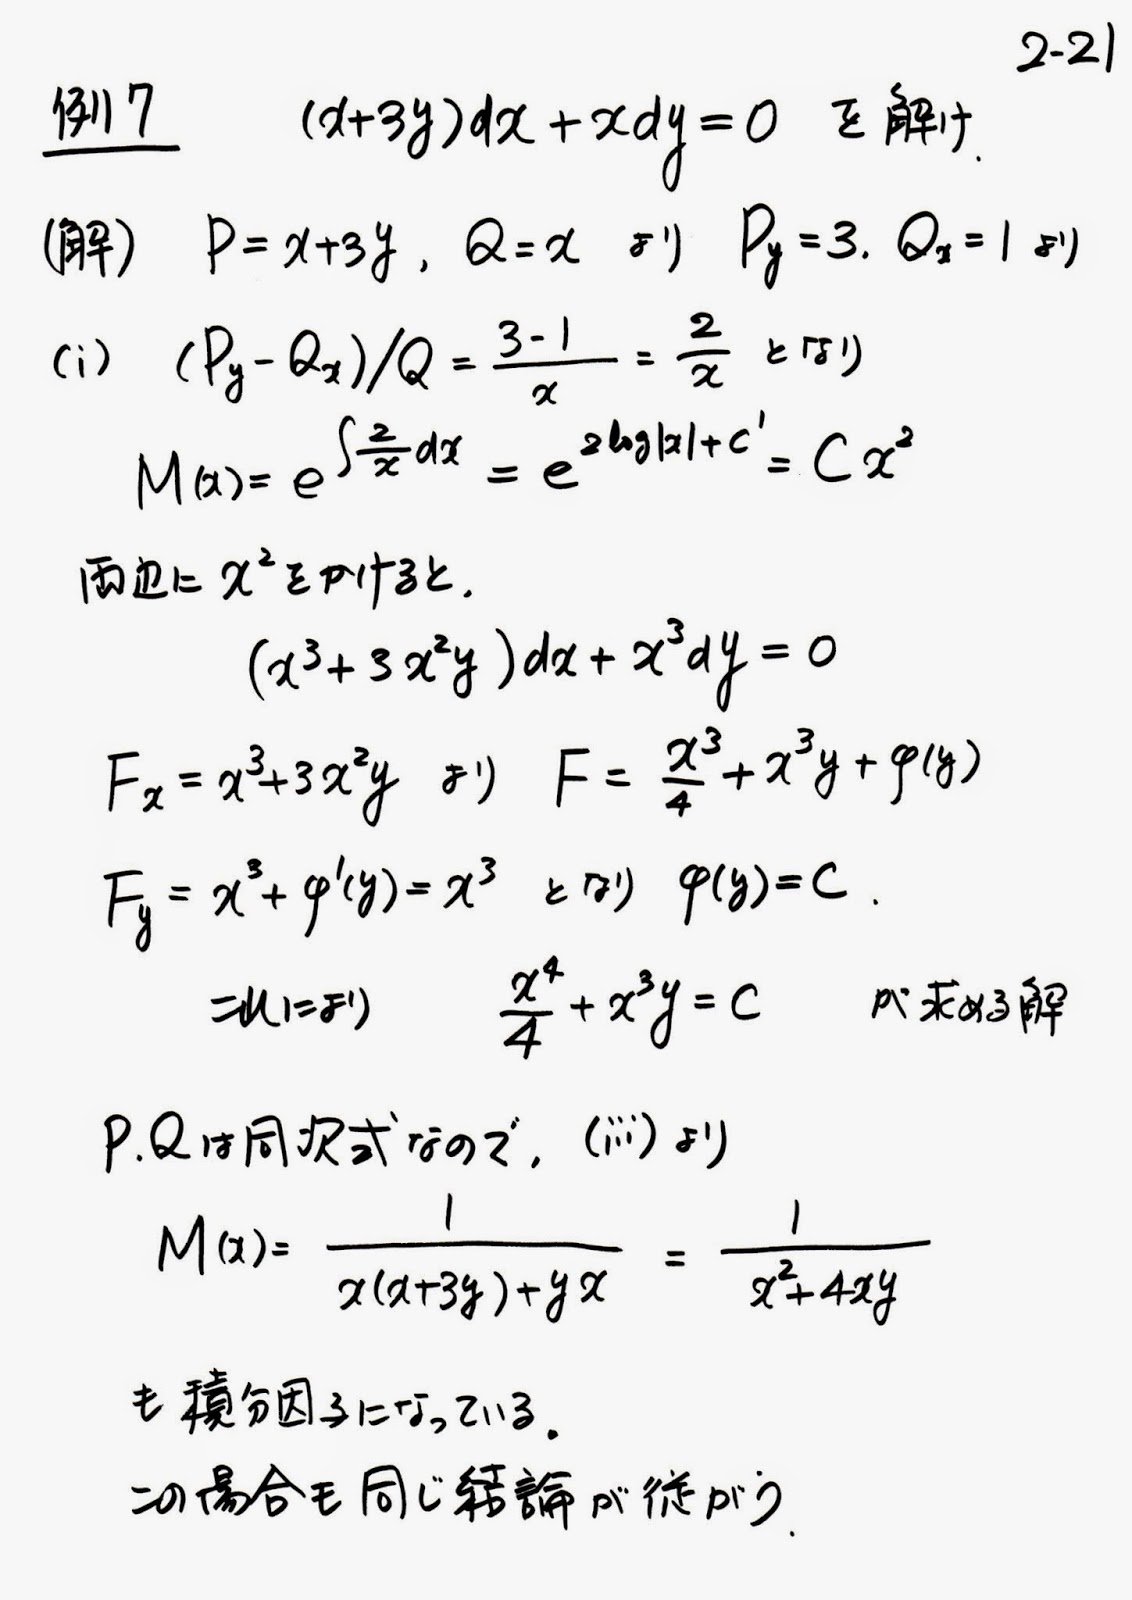 2-21
例7 (x+3y)dx+xdy=0 を解け.
(解) P=x+3y, Q=x より Py=3. Qx=1 より
(i) (Py-Qx)/Q = (3-1)/x = 2/x となり
M(x)= e^{∫2/x dx} = e^{2log|x|+C'} = Cx²
両辺に x² をかけると,
(x³+3x²y)dx+x³dy=0
Fx = x³+3x²y より F = x³/4 + x³y + φ(y)
Fy = x³+φ'(y)=x³ となり φ(y)=C.
これにより x⁴/4 + x³y = C が求める解
P.Qは同次式なので, (iii)より
M(x)= 1/(x(x+3y)+yx) = 1/(x²+4xy)
も積分因子になっている.
この場合も同じ結論が従がう.